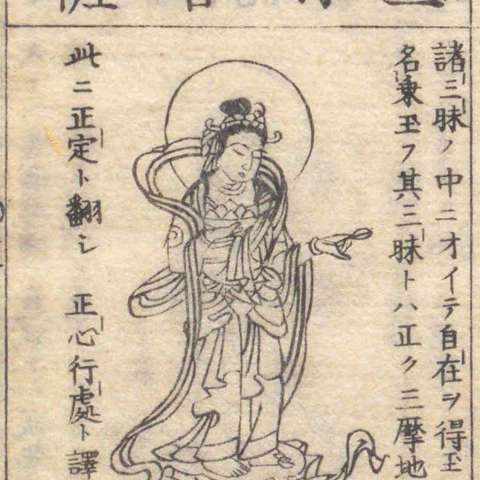 諸三昧ノ中ニオイテ自在ヲ得玉
名乗玉フ其三昧トハ正ク三摩地
此ニ正定ト翻シ 正心行處ト譯